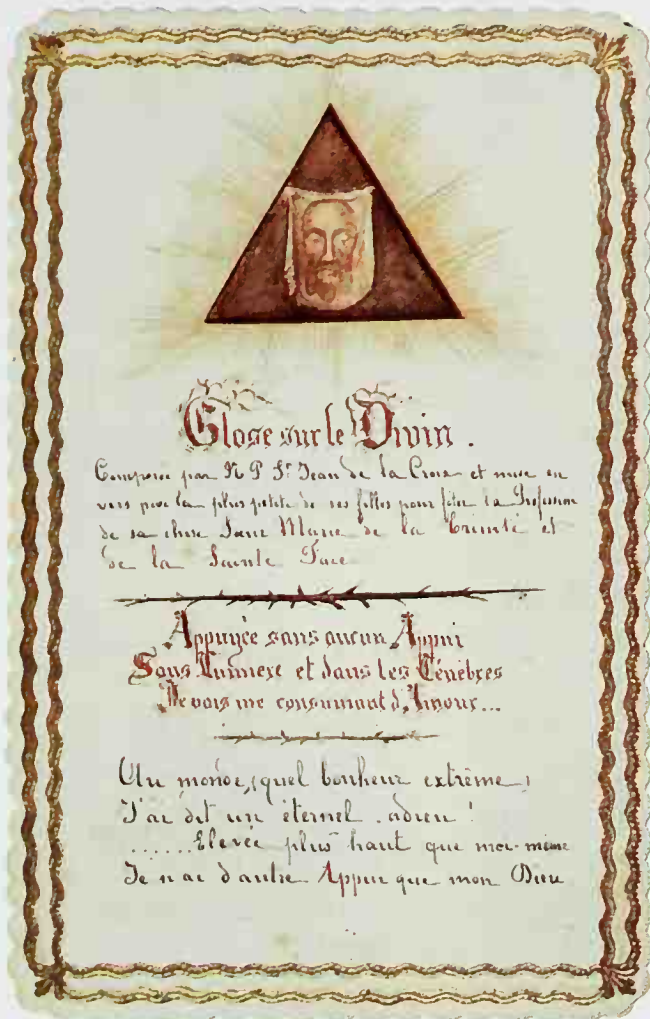 Glose sur le Divin.
Composée par N. P. St Jean de la Croix et mise en
vers par la plus petite de ses filles pour fêter la Profession
de sa chère Sœur Marie de la Trinité et
de la Sainte Face
Appuyée sans aucun Appui
Sans Lumière et dans les Ténèbres
Je vais me consumant d'Amour...
Au monde, (quel bonheur extrême)
J'ai dit un éternel adieu !
......Elevée plus haut que moi-même
Je n'ai d'autre Appui que mon Dieu